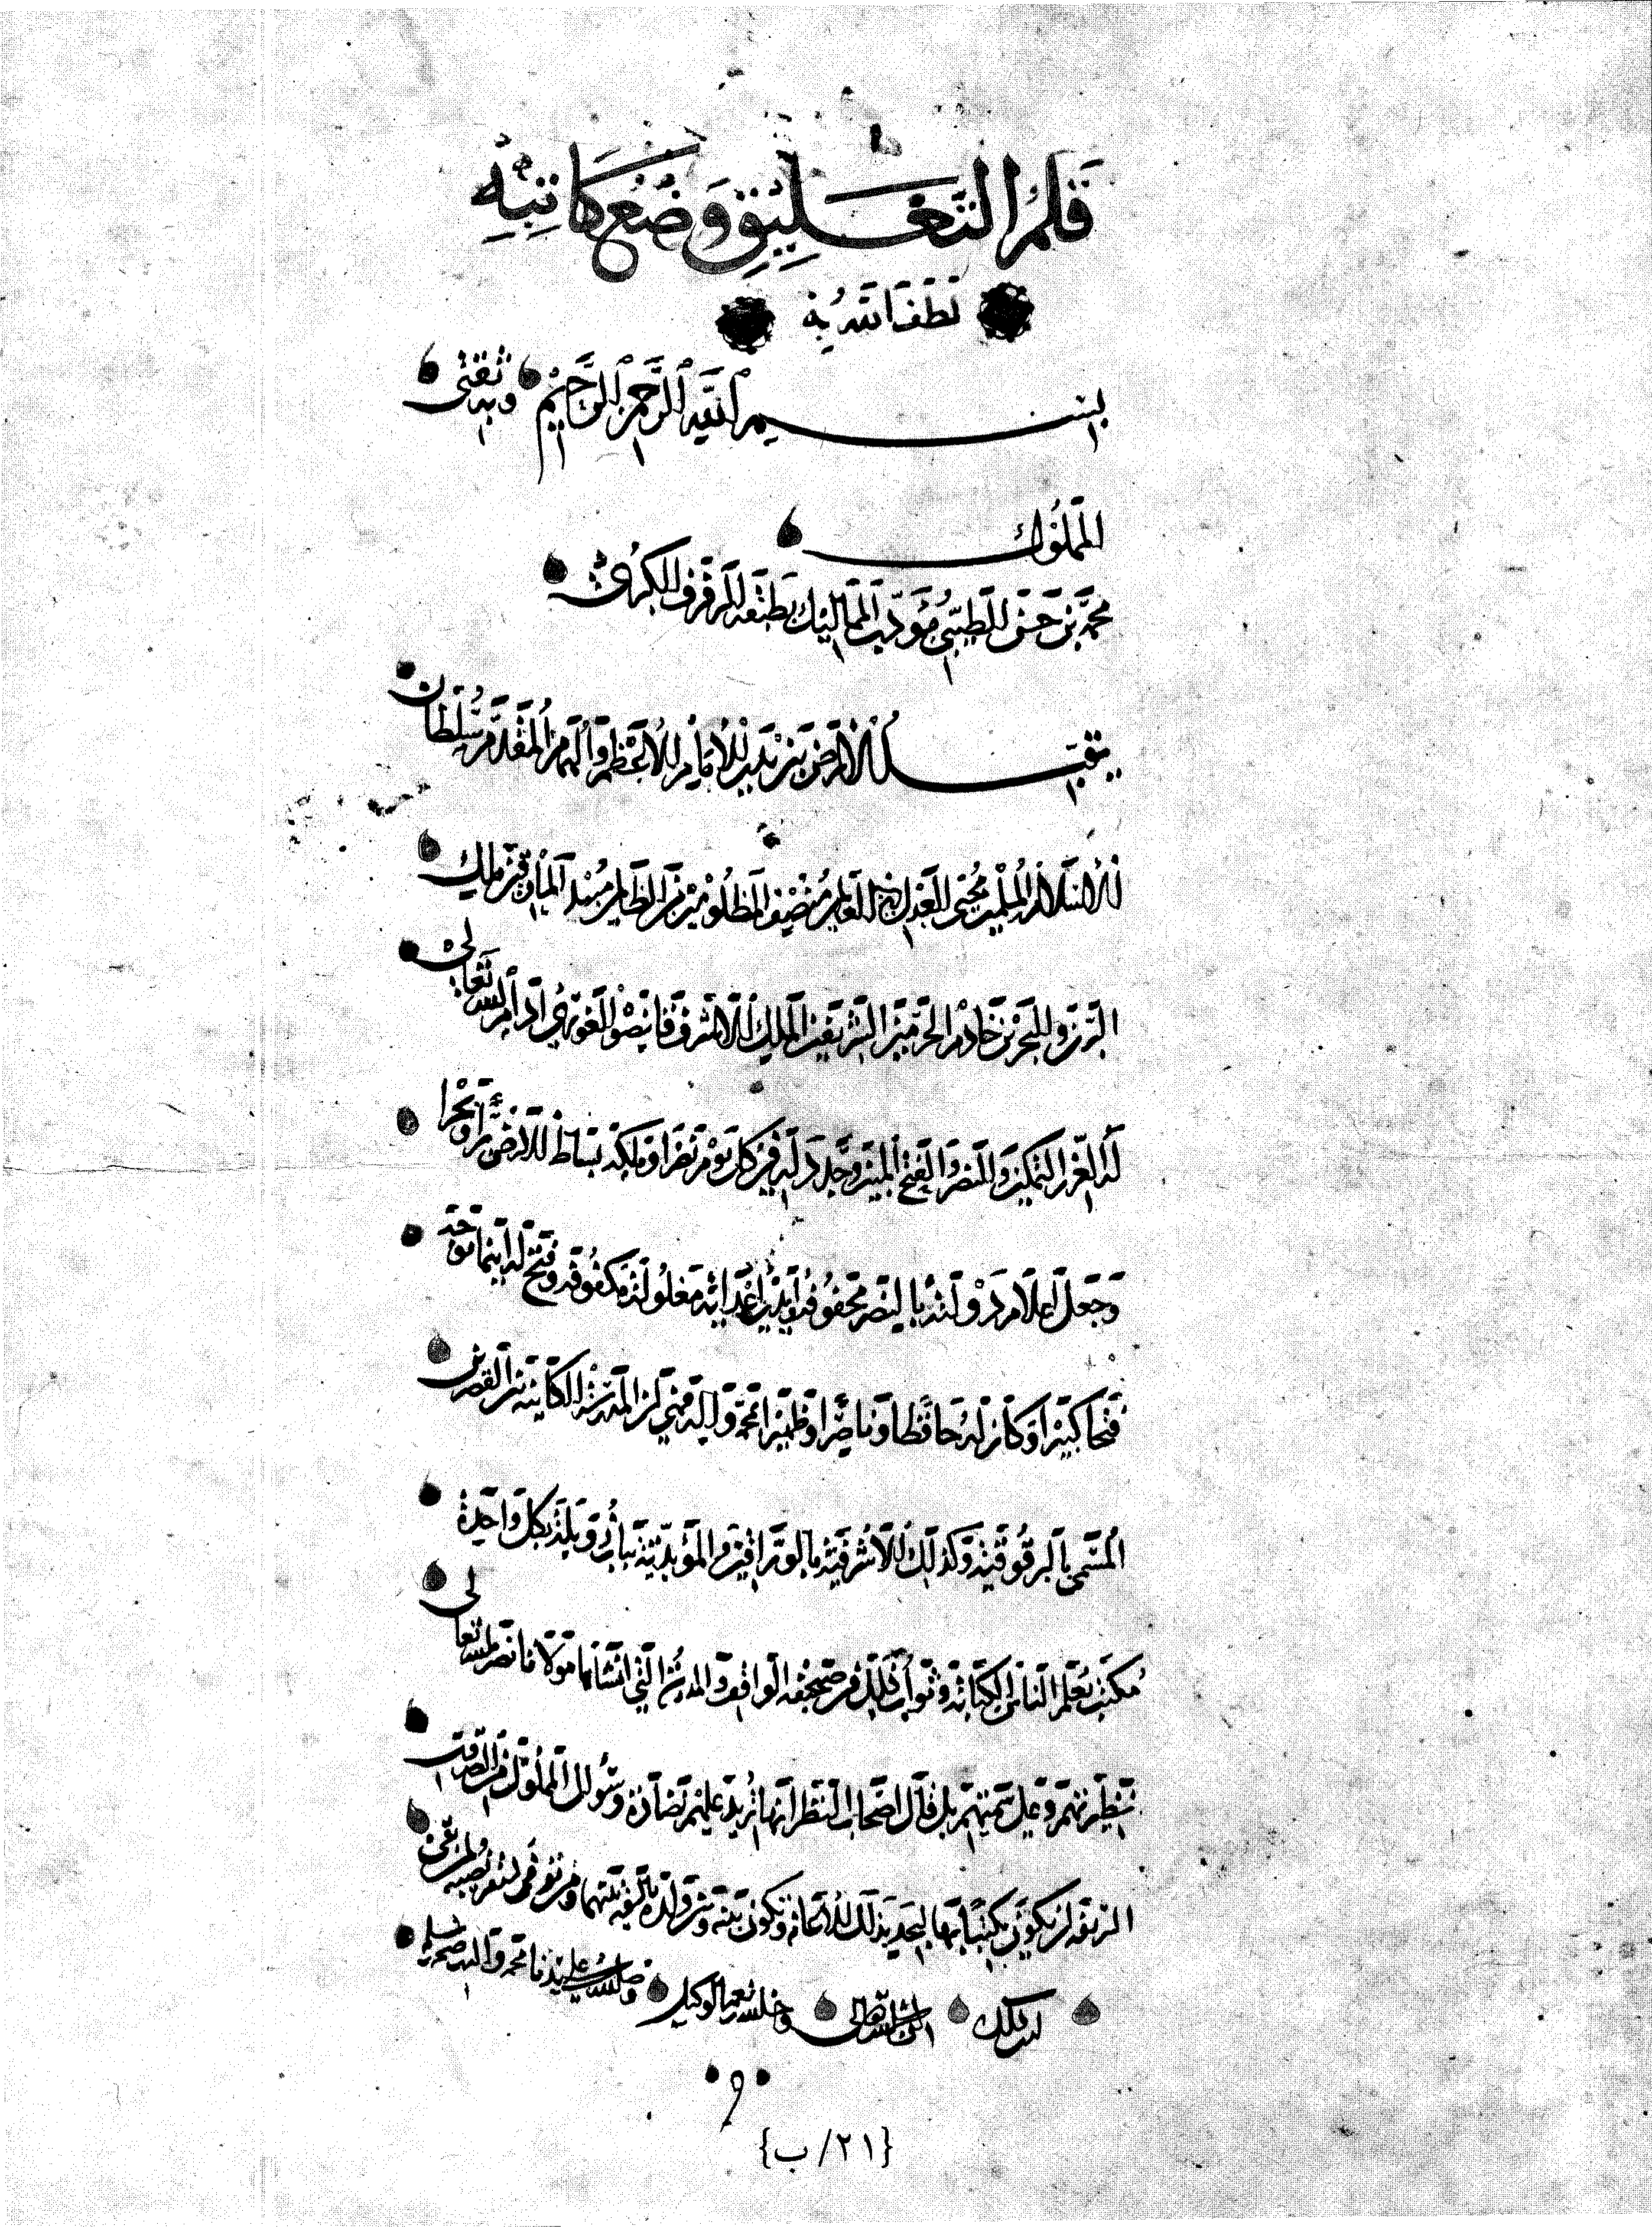 قلم التعليق وضع كاتبه
لطف الله به
بسم الله الرحمن الرحيم وبه ثقتي
المملوك
محمد بن حسن الطيبي مؤدب المماليك بطبقة الرفرف الكبرى
يقبل الأرض بين يدي الإمام الأعظم والهمام المقدم سلطان
الإسلام والمسلمين محيي العدل في العالم منصف المظلومين من الظالمين مبيد المارقين ملك
البرين والبحرين خادم الحرمين الشريفين الملك الأشرف قانصوه الغوري أدام الله تعالى
له العز والتمكين والنصر والفتح المبين وجدد له في كل يوم نصرا وملكه بساط الأرض برا وبحرا
وجعل أعلام دولته بالنصر محفوفة وأيدي أعدائه مغلولة مكفوفة وفتح له أينما توجه
فتحا كبيرا وكان له حافظا وناصرا وظهيرا بمحمد وآله وينهي أن المدرسة الكائنة بين القصرين
المسماة بالبرقوقية وكذلك الأشرفية بالوراقين والمؤيدية بباب زويلة بكل واحدة
مكتب يعلم الناس الكتابة وثواب ذلك في صحيفة الواقف والمدرسة التي أنشأها مولانا نصره الله تعالى
نظيرتهم وعلى سمتهم بل قال أصحاب النظر أنها تزيد عليهم نضارة وسؤال المملوك من الصدقات
الشريفة أن يكون بكتابتها ليحيى بذلك الأيتام وتكون بينه وبين ولده بالسوية بينهما ومن توفي انتقل نصيبه لمن بقي
لله ذلك إن شاء الله تعالى وحسبنا الله ونعم الوكيل وصلى الله على سيدنا محمد وآله وصحبه وسلم
{٢١/ب}